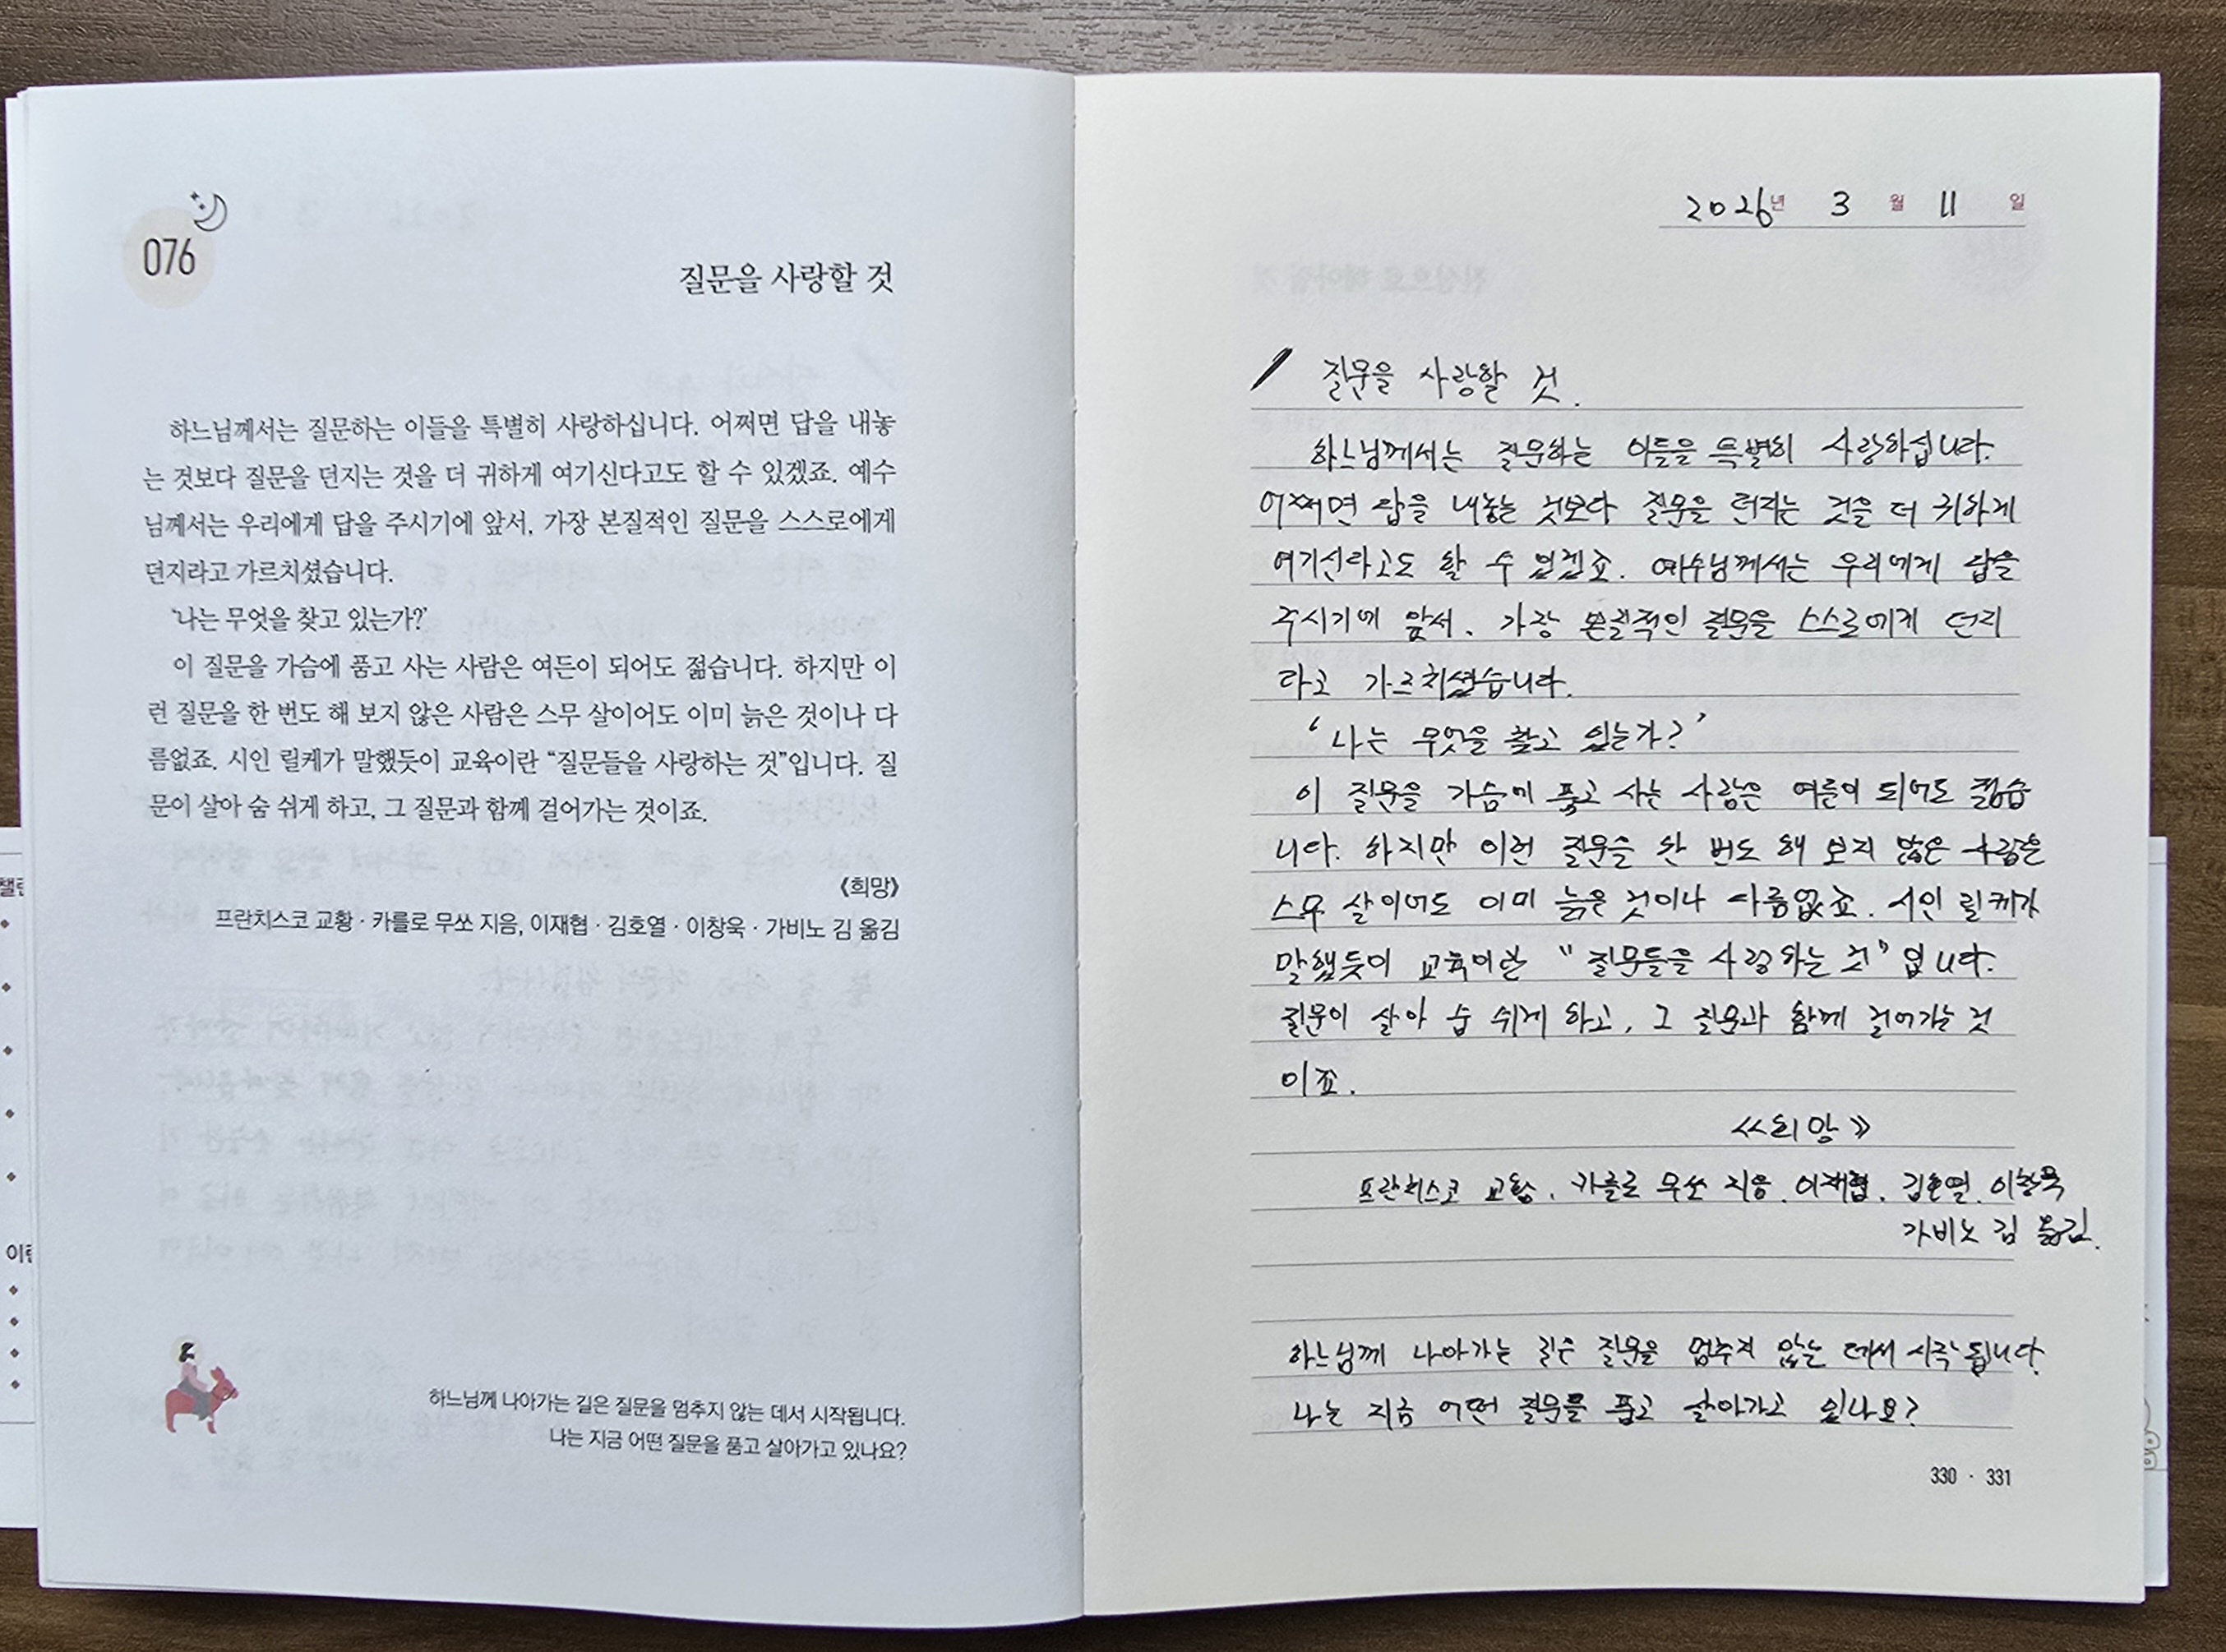 076
질문을 사랑할 것
하느님께서는 질문하는 이들을 특별히 사랑하십니다. 어쩌면 답을 내놓
는 것보다 질문을 던지는 것을 더 귀하게 여기신다고도 할 수 있겠죠. 예수
님께서는 우리에게 답을 주시기에 앞서, 가장 본질적인 질문을 스스로에게
던지라고 가르치셨습니다.
'나는 무엇을 찾고 있는가?'
이 질문을 가슴에 품고 사는 사람은 여든이 되어도 젊습니다. 하지만 이
런 질문을 한 번도 해 보지 않은 사람은 스무 살이어도 이미 늙은 것이나 다
름없죠. 시인 릴케가 말했듯이 교육이란 “질문들을 사랑하는 것”입니다. 질
문이 살아 숨 쉬게 하고, 그 질문과 함께 걸어가는 것이죠.
《희망》
프란치스코 교황 · 카를로 무쏘 지음, 이재협 · 김호열 · 이창욱 · 가비노 김 옮김
하느님께 나아가는 길은 질문을 멈추지 않는 데서 시작됩니다.
나는 지금 어떤 질문을 품고 살아가고 있나요?
2026년 3월 11일
질문을 사랑할 것.
하느님께서는 질문하는 이들을 특별히 사랑하십니다.
어쩌면 답을 내놓는 것보다 질문을 던지는 것을 더 귀하게
여기신라고도 할 수 있겠죠. 예수님께서는 우리에게 답을
주시기에 앞서, 가장 본질적인 질문을 스스로에게 던지
라고 가르치셨습니다.
'나는 무엇을 찾고 있는가?'
이 질문을 가슴에 품고 사는 사람은 여든이 되어도 젊습
니다. 하지만 이런 질문을 한 번도 해 보지 않은 사람은
스무 살이어도 이미 늙은 것이나 다름없죠. 시인 릴케가
말했듯이 교육이란 “질문들을 사랑하는 것”입니다.
질문이 살아 숨 쉬게 하고, 그 질문과 함께 걸어가는 것
이죠.
《희망》
프란치스코 교황. 카를로 무쏘 지음. 이재협. 김호열. 이창욱
가비노 김 옮김.
하느님께 나아가는 길은 질문을 멈추지 않는 데서 시작됩니다.
나는 지금 어떤 질문을 품고 살아가고 있나요?
330 · 331